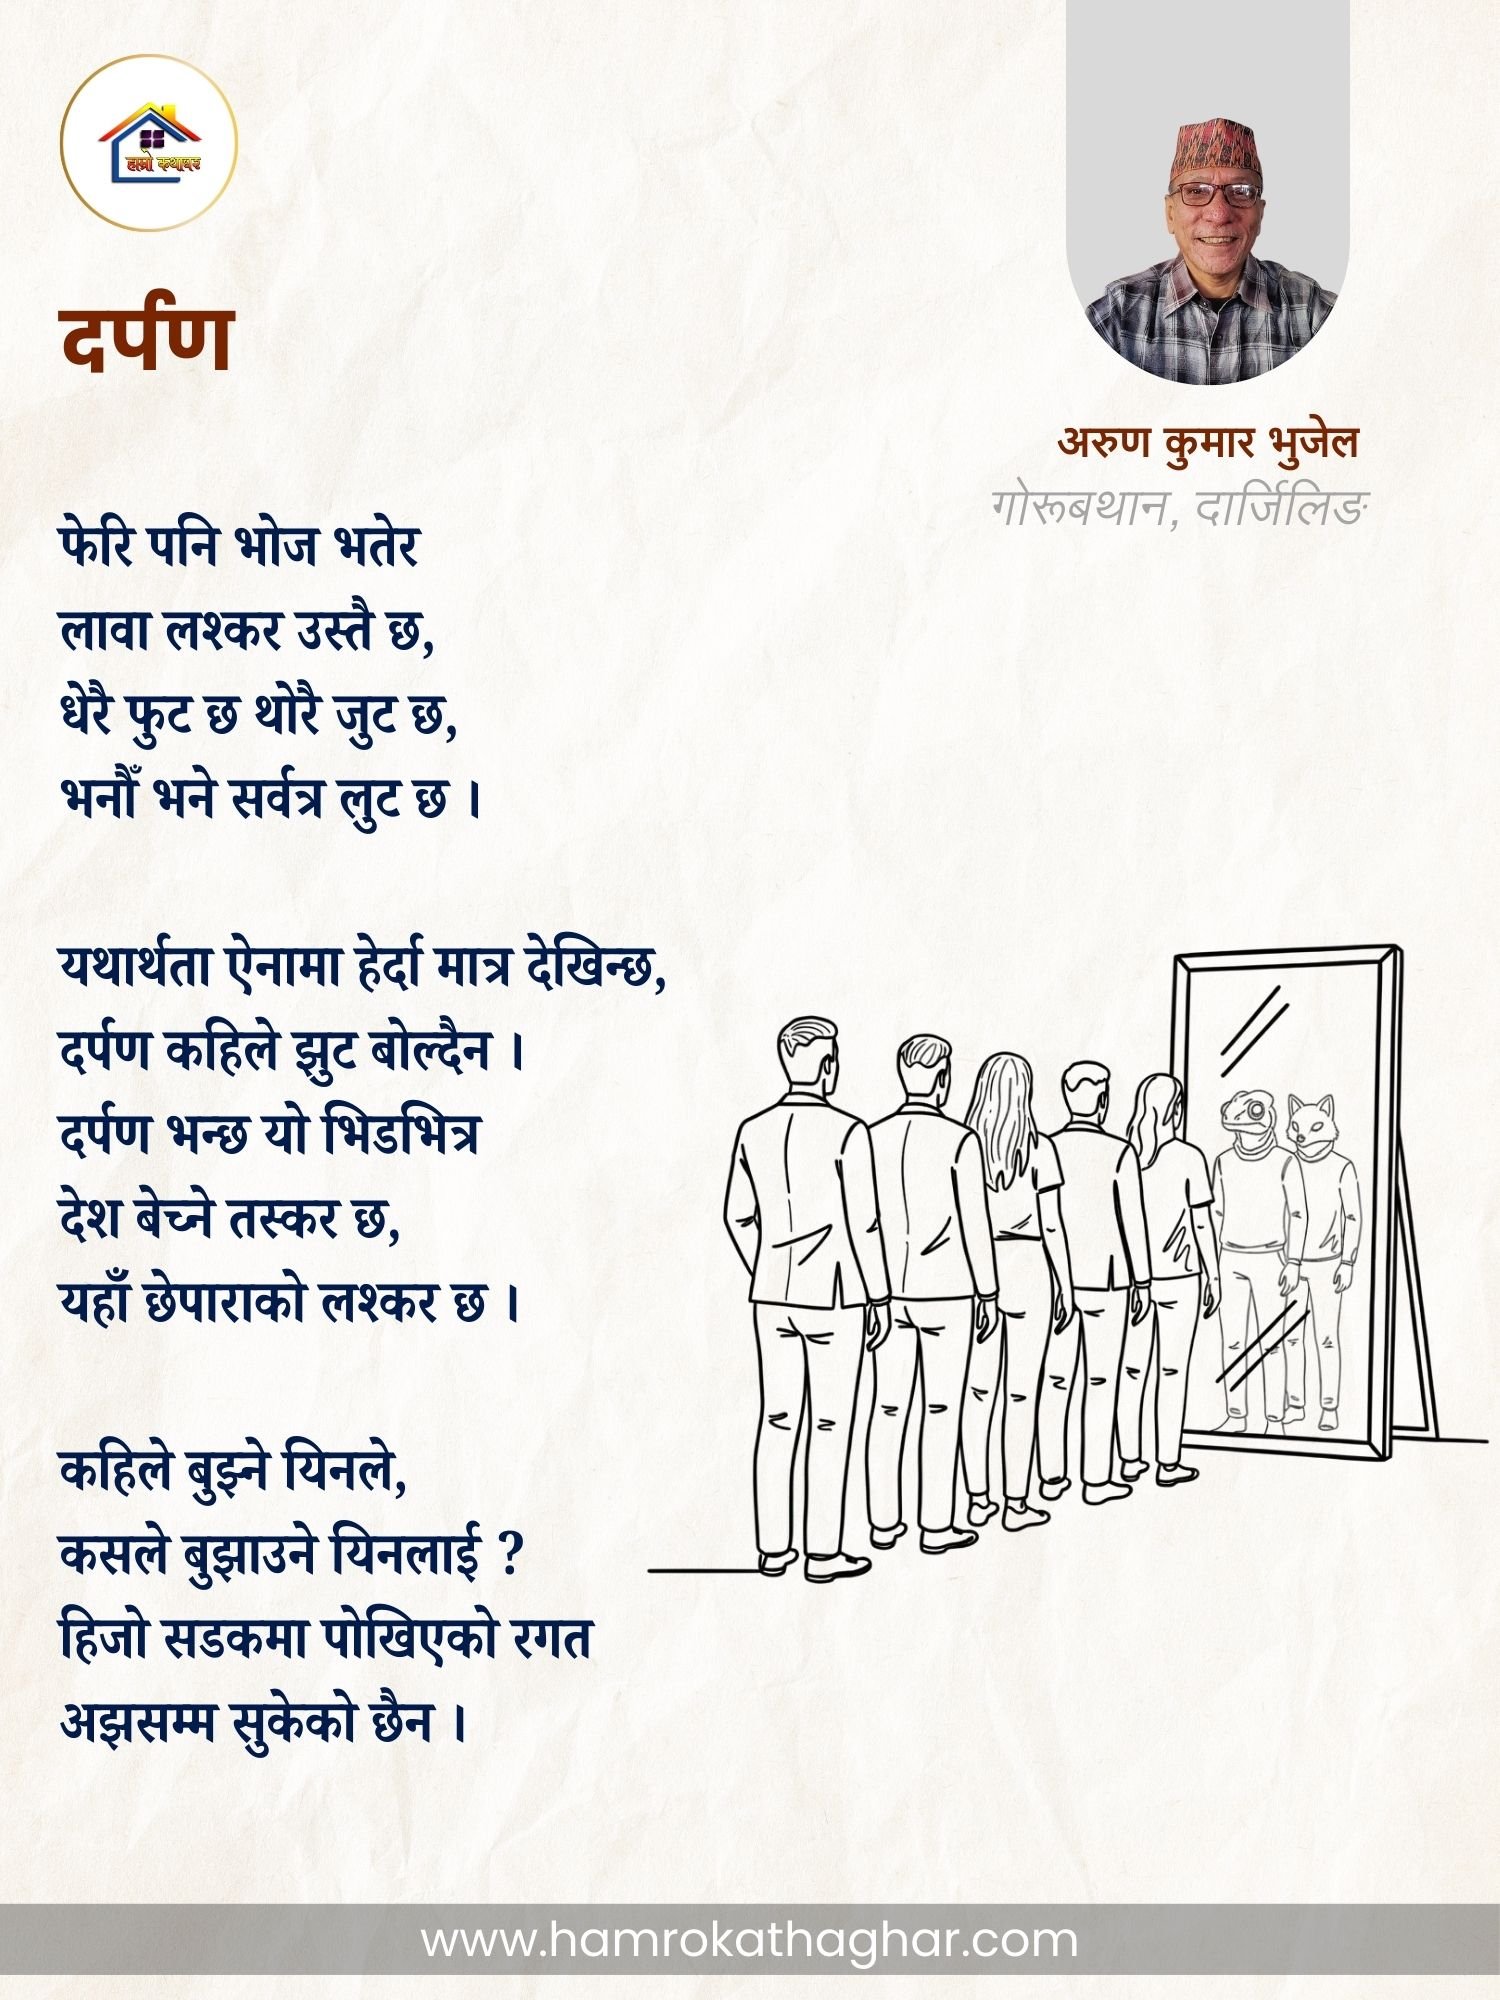 हाम्रो कथाघर
दर्पण
अरुण कुमार भुजेल
गोरूबथान, दार्जिलिङ
फेरि पनि भोज भतेर
लावा लश्कर उस्तै छ,
धेरै फुट छ थोरै जुट छ,
भनौँ भने सर्वत्र लुट छ ।
यथार्थता ऐनामा हेर्दा मात्र देखिन्छ,
दर्पण कहिले झुट बोल्दैन ।
दर्पण भन्छ यो भिडभित्र
देश बेच्ने तस्कर छ,
यहाँ छेपाराको लश्कर छ ।
कहिले बुझ्ने यिनले,
कसले बुझाउने यिनलाई ?
हिजो सडकमा पोखिएको रगत
अझसम्म सुकेको छैन ।
www.hamrokathaghar.com